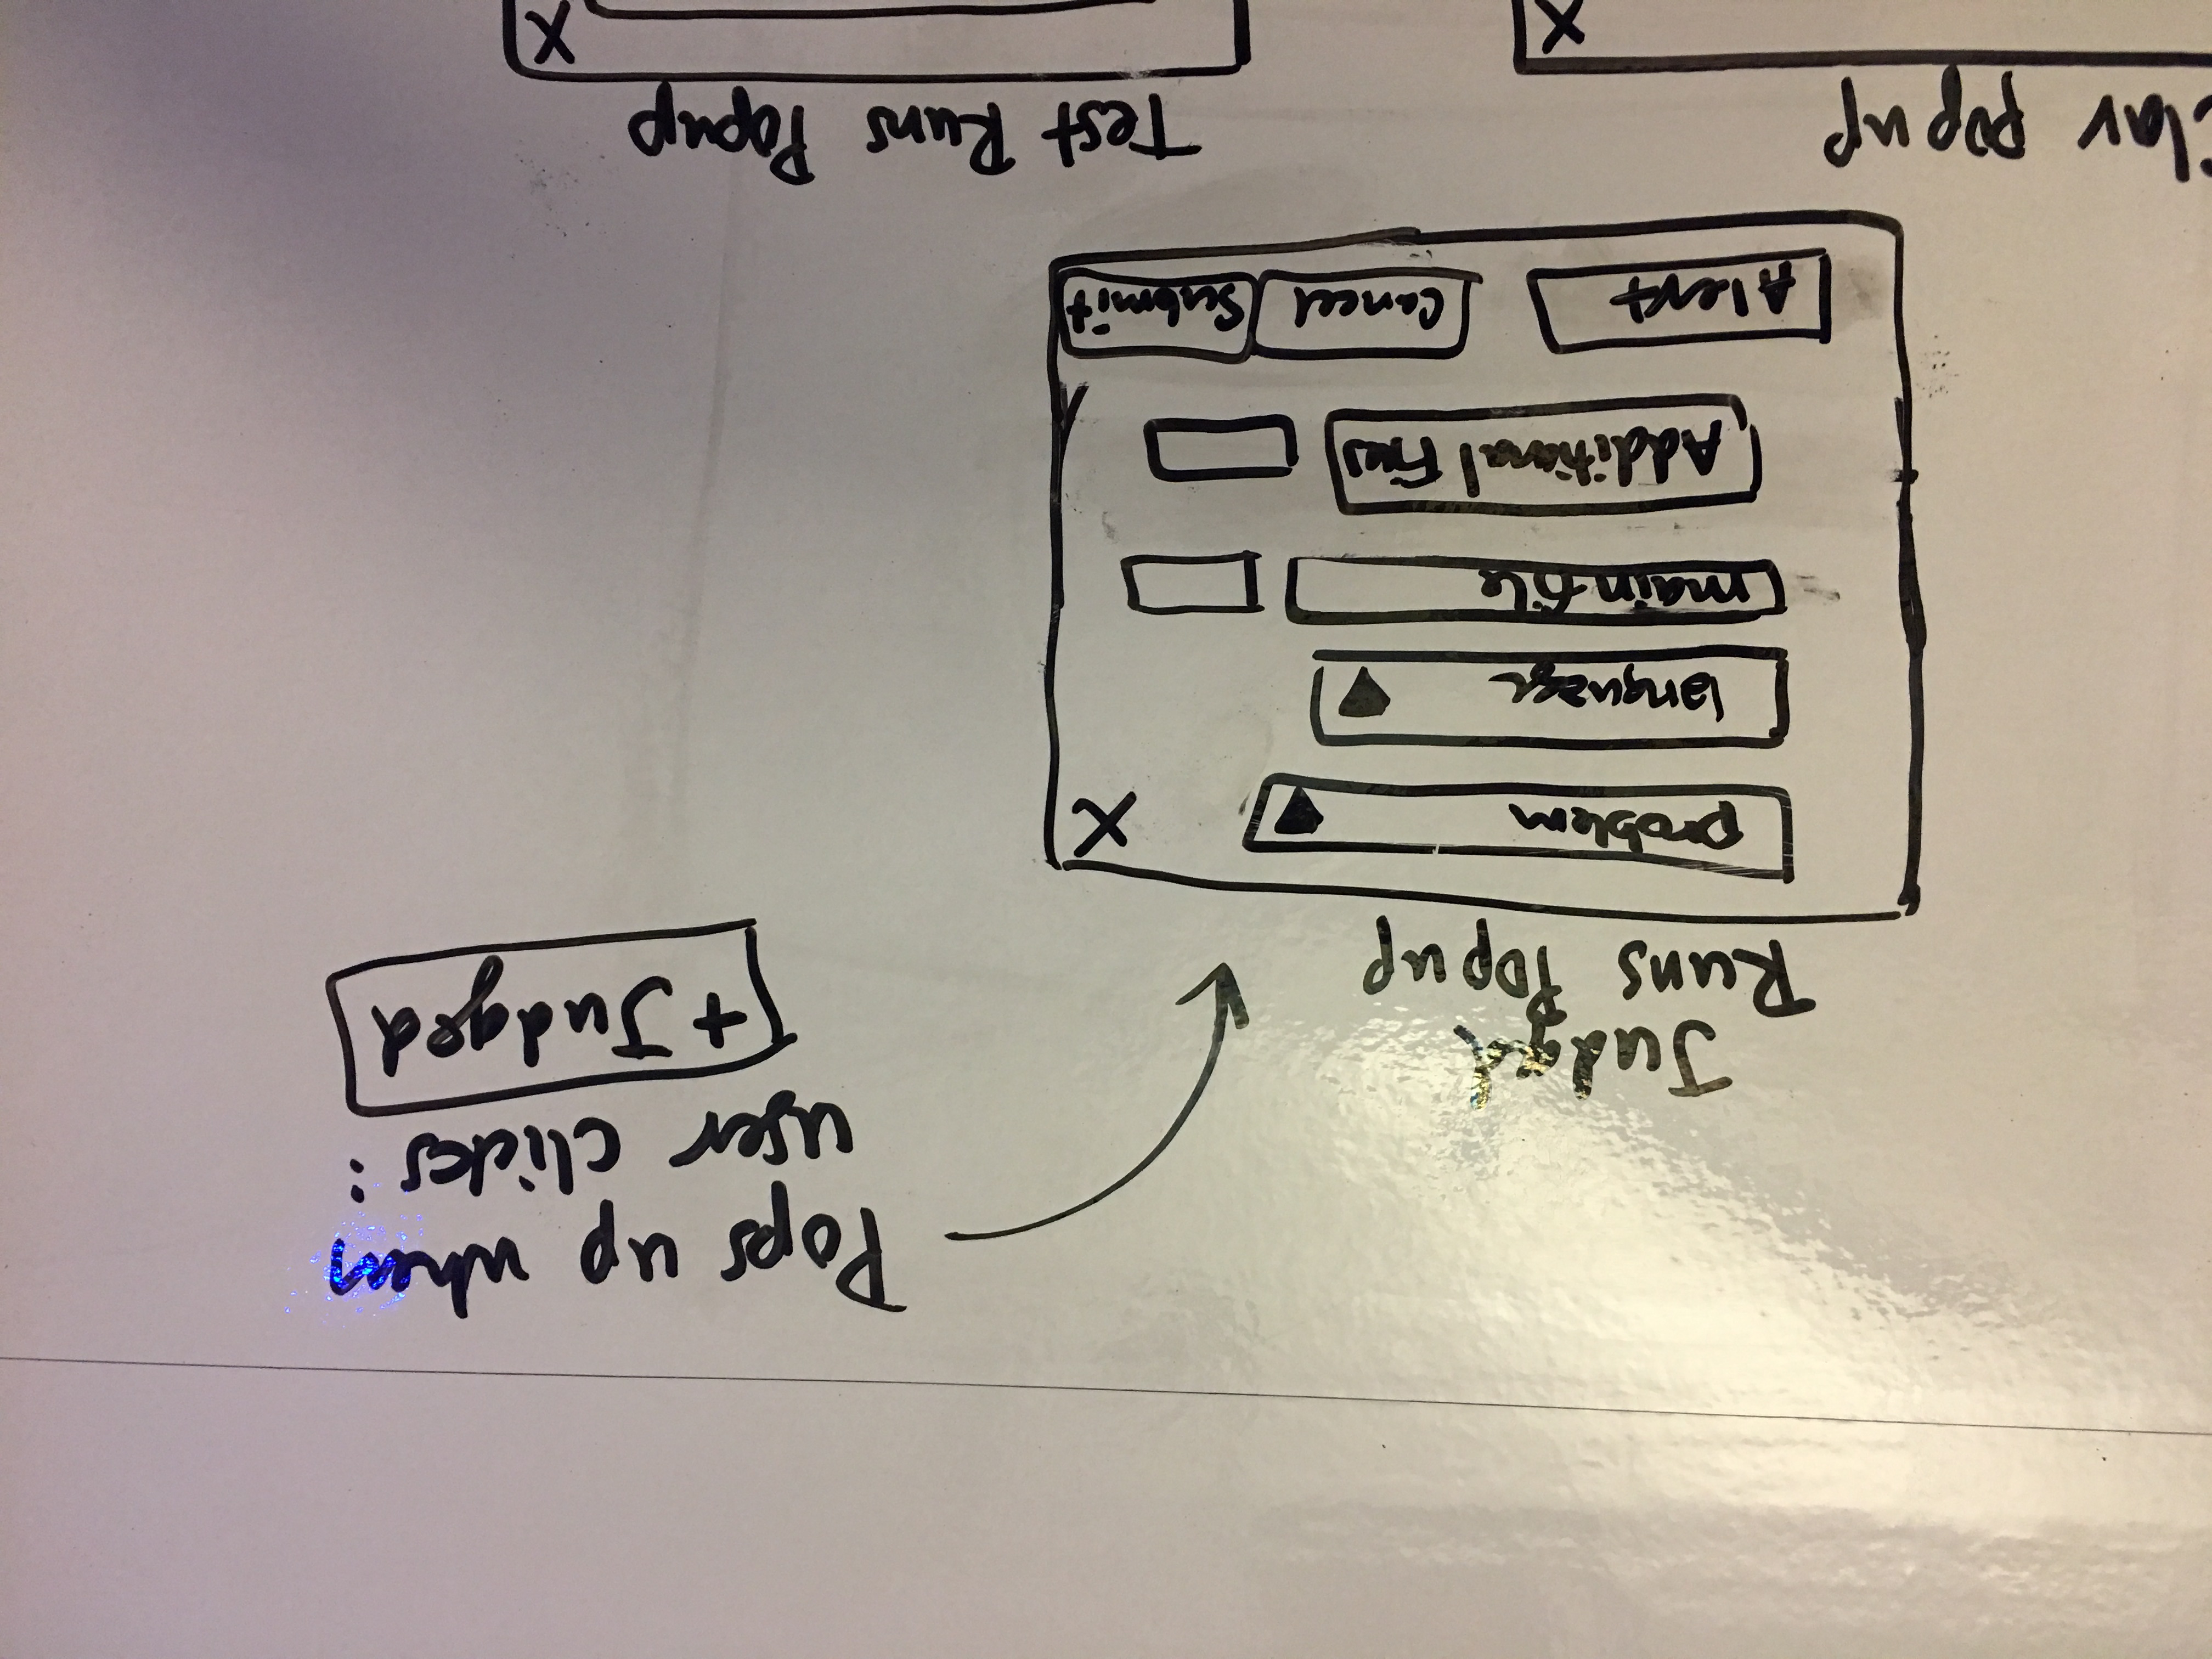 Pops up when
user clicks:
+ Judged
Judged
Runs Popup
problem
X
language
main file
Additional Files
Alert
Cancel
Submit
Clar popup
X
Test Runs Popup
X